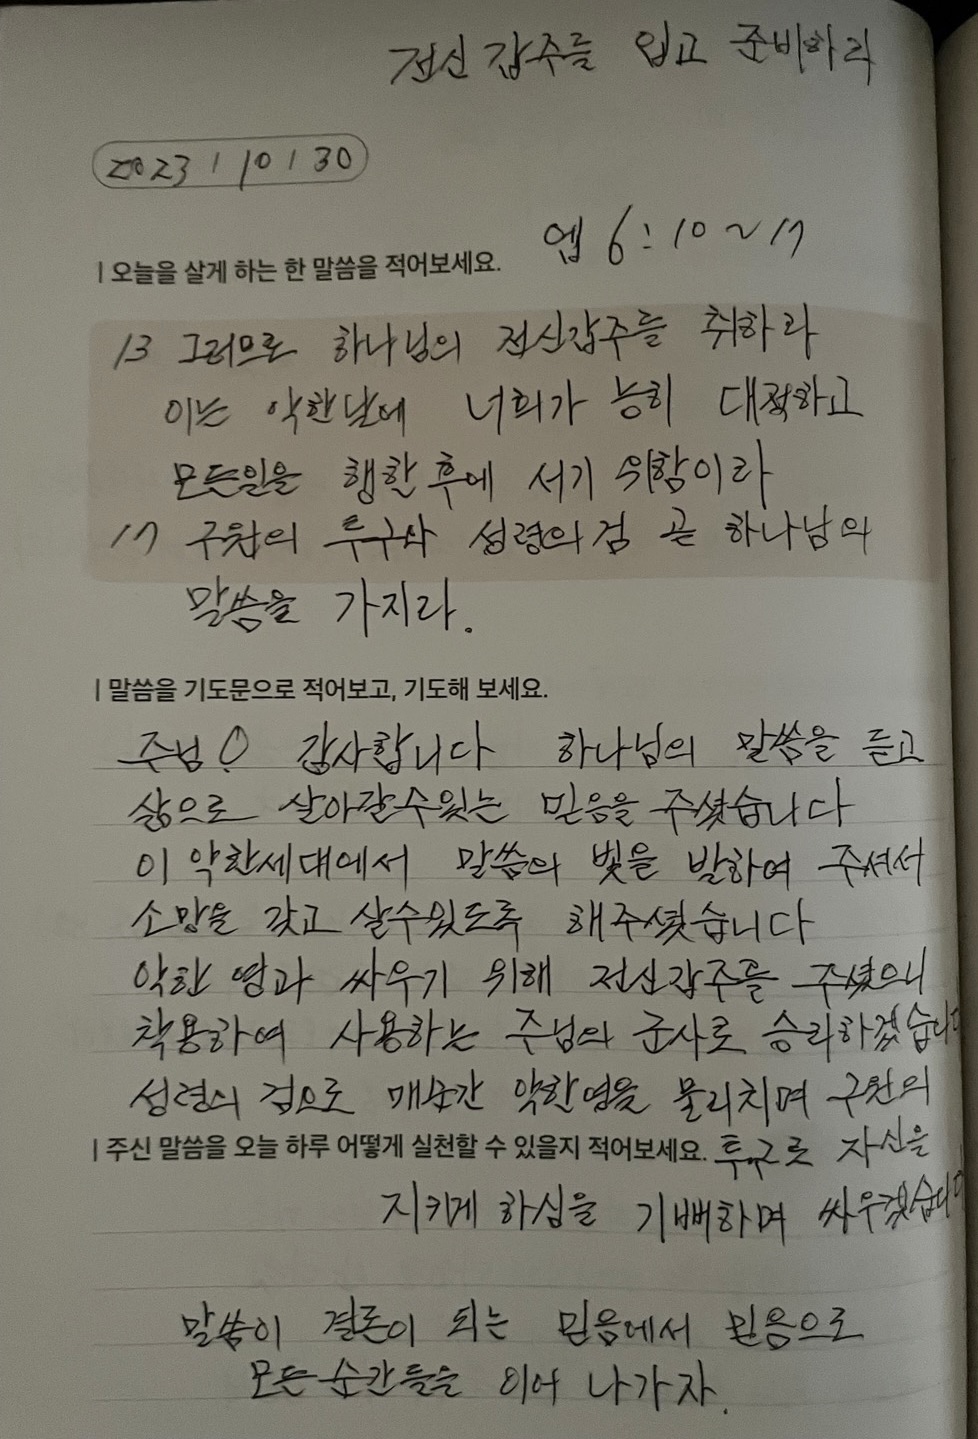 전신갑주를 입고 준비하라
2023 / 10 / 30
엡 6:10~17
| 오늘을 살게 하는 한 말씀을 적어보세요.
13 그러므로 하나님의 전신갑주를 취하라
이는 악한날에 너희가 능히 대적하고
모든일을 행한 후에 서기 위함이라
17 구원의 투구와 성령의 검 곧 하나님의
말씀을 가지라.
| 말씀을 기도문으로 적어보고, 기도해 보세요.
주님! 감사합니다 하나님의 말씀을 듣고
삶으로 살아갈수있는 믿음을 주셨습니다
이 악한세대에서 말씀의 빛을 발하여 주셔서
소망을 갖고 살수있도록 해주셨습니다
악한 영과 싸우기 위해 전신갑주를 주셨으니
착용하여 사용하는 주님의 군사로 승리하겠습니다
성령의 검으로 매순간 악한영을 물리치며 구원의
| 주신 말씀을 오늘 하루 어떻게 실천할 수 있을지 적어보세요. 투구로 자신을
지키게 하심을 기뻐하며 싸우겠습니다
말씀이 결론이 되는 믿음에서 믿음으로
모든 순간들을 이어 나가자.